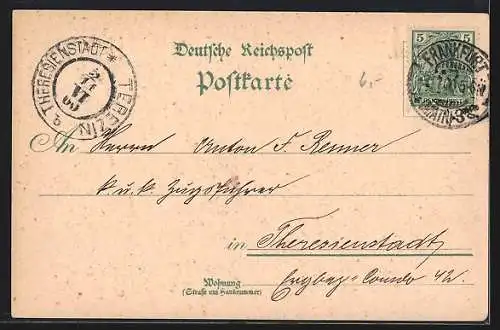 Deutsche Reichspost
Postkarte
THERESIENSTADT * TEREZIN
VI
5 5
FRANKFURT
(MAIN)
6.-
An Herrn Anton F. Renner
k. u. k. Zugsführer
in Theresienstadt
Wohnung
(Straße und Hausnummer)
42.